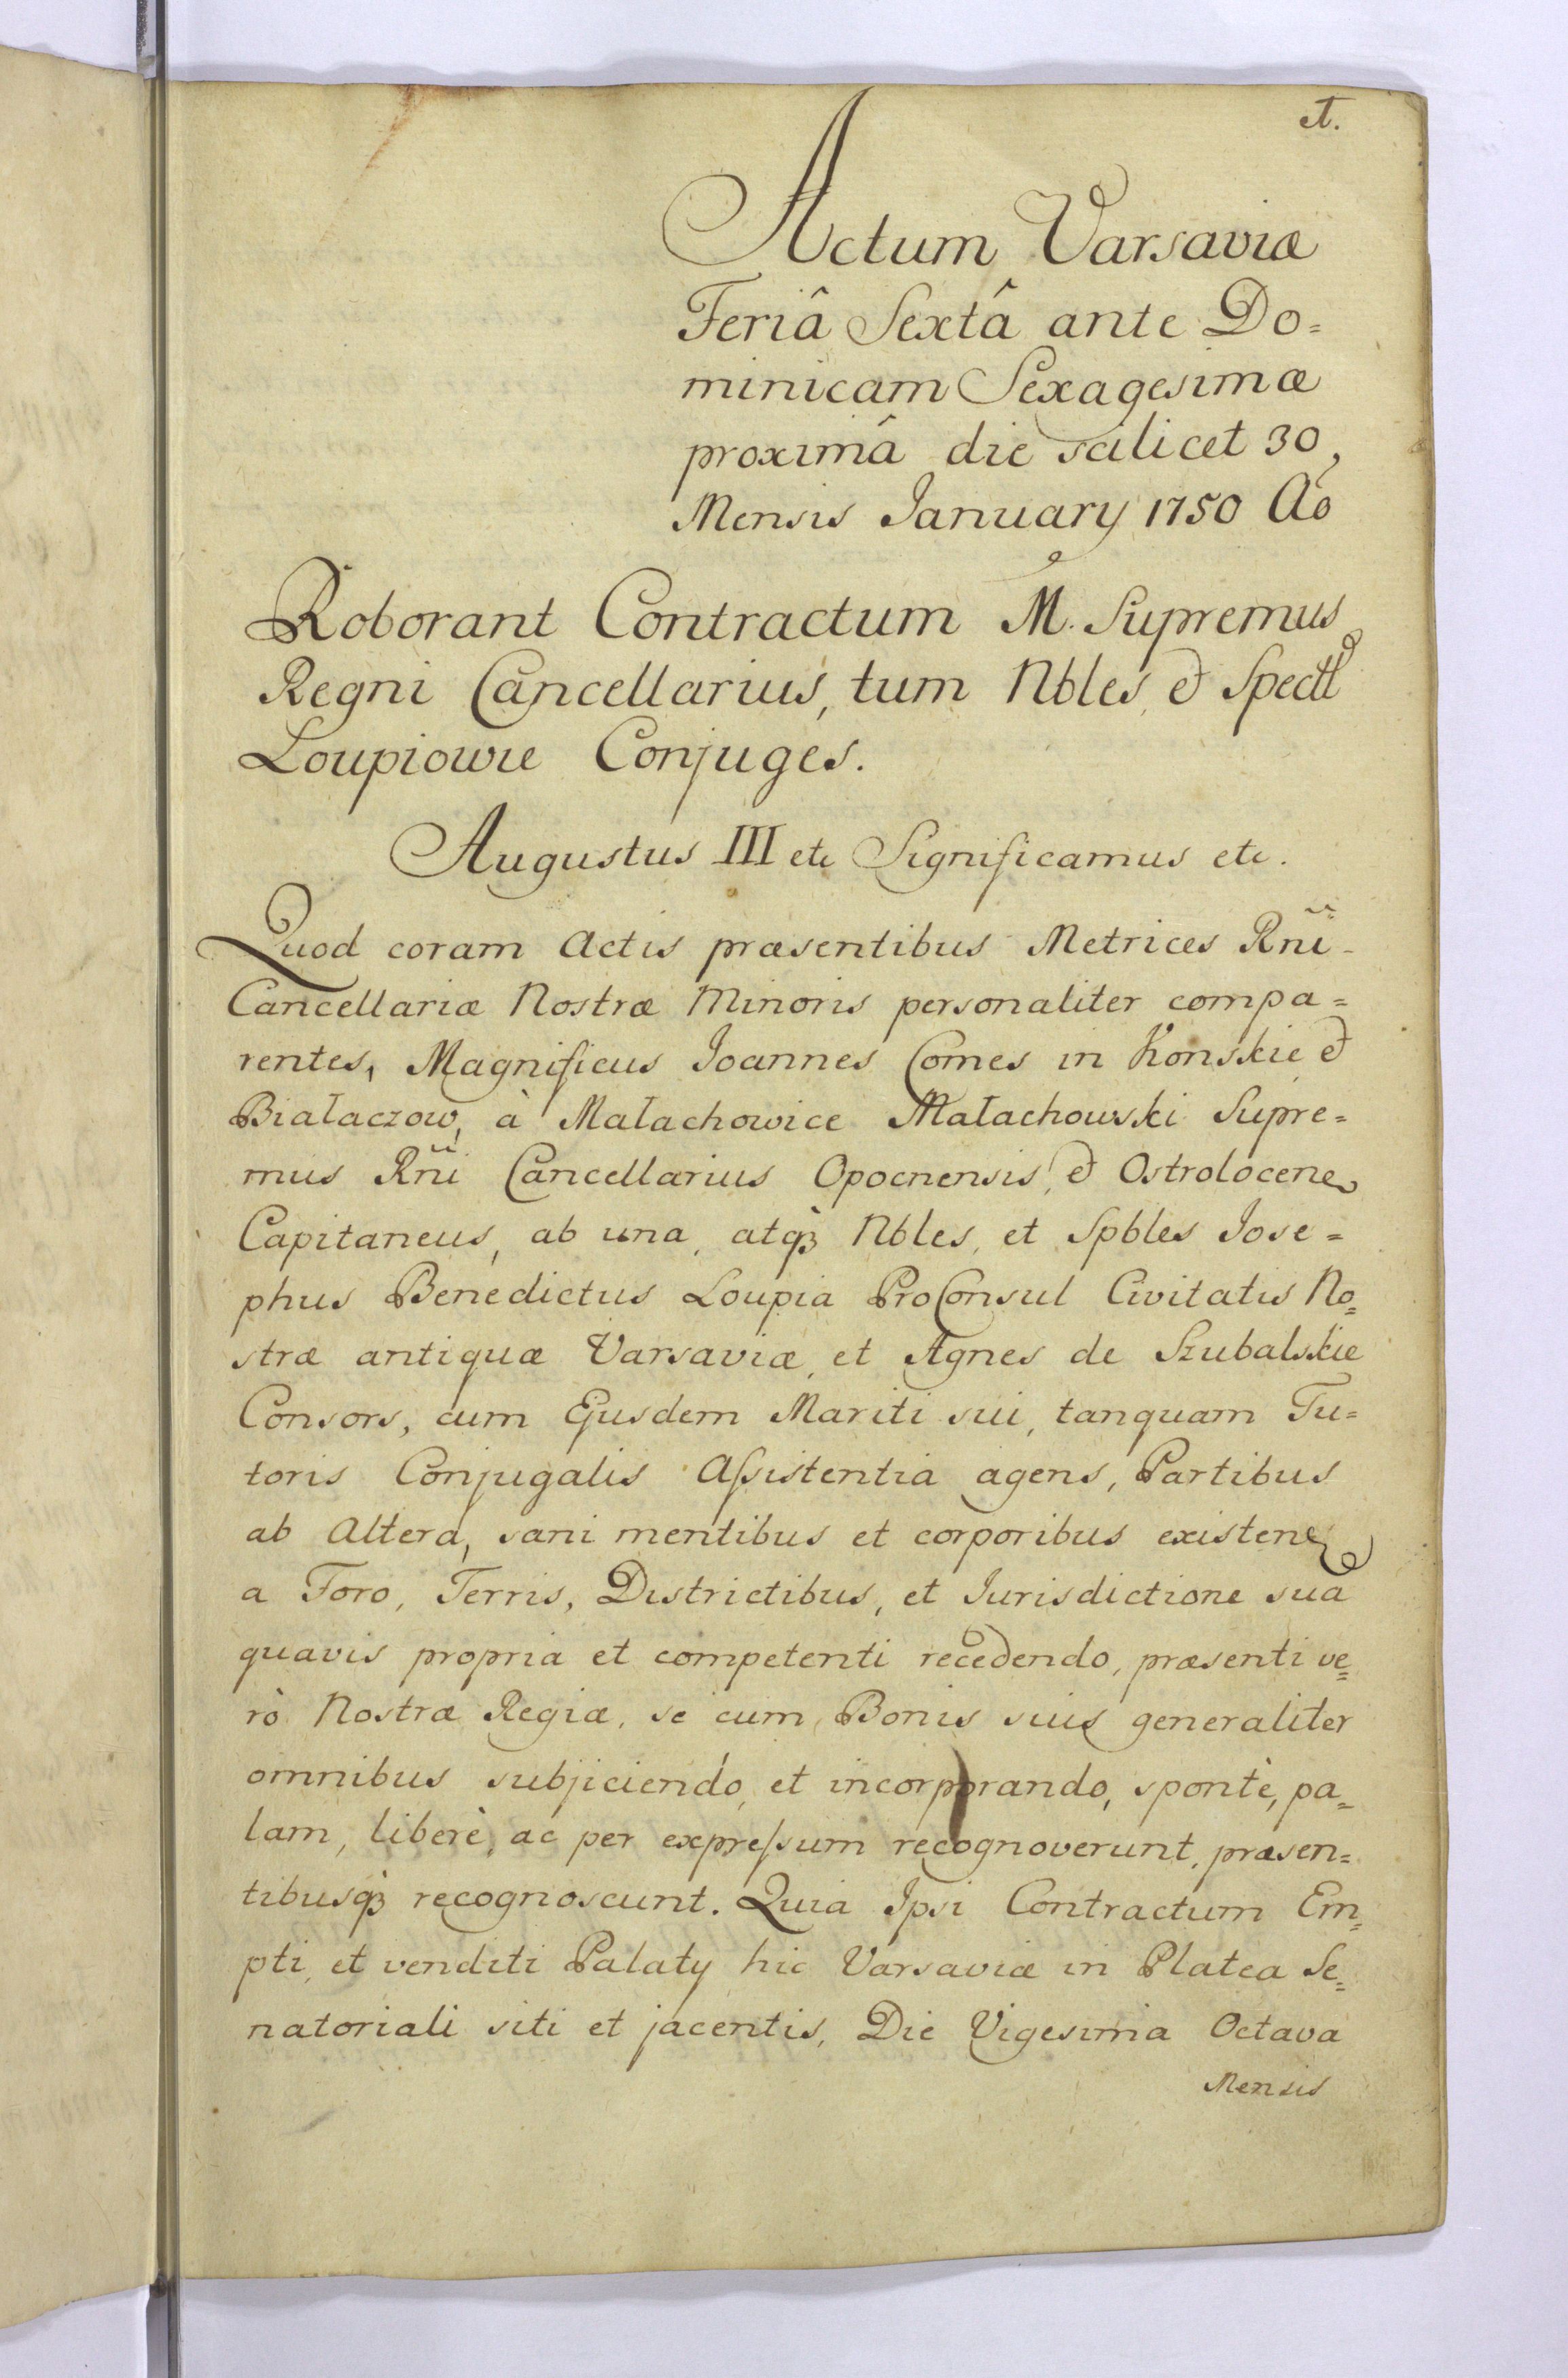 A.
Actum Varsaviæ
Feriâ Sextâ ante Do=
minicam Sexagesimæ
proximâ die scilicet 30,
Mensis January 1750 Aõ
Roborant Contractum M. Supremus
Regni Cancellarius, tum Nbles, & Spectl
Loupiowie Conjuges.
Augustus III etc Significamus etc.
Quod coram Actis præsentibus Metrices Rñi
Cancellariæ Nostræ Minoris personaliter compa=
rentes, Magnificus Joannes Comes in Konskie &
Białaczow, à Małachowice Małachowski Supre=
mus Rñi Cancellarius Opocnensis, & Ostrolocenes
Capitaneus, ab una, atqꝫ Nbles, et Spbles Jose=
phus Benedictus Loupia ProConsul Civitatis No=
stræ antiquæ Varsaviæ, et Agnes de Szubalskie
Consors, cum Ejusdem Mariti sui, tanquam Tu=
toris Conjugalis Aſsistentia agens, Partibus
ab Altera, sani mentibus et corporibus existen
a Foro, Terris, Districtibus, et Jurisdictione sua
quavis propria et competenti recedendo, præsenti ve=
rò Nostræ Regiæ, se cum Bonis suis generaliter
omnibus subjiciendo, et incorporando, spontè, pa=
lam, liberè, ac per expreſsum recognoverunt, præsen=
tibusqꝫ recognoscunt. Quia Ipsi Contractum Em=
pti, et venditi Palaty hic Varsaviæ in Platea Se=
natoriali siti et jacentis, Die Vigesima Octava
Mensis